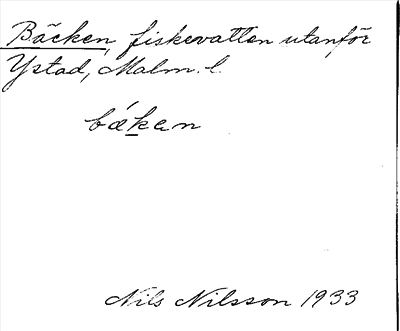 Bäcken, fiskevatten utanför
Ystad, Malm. l.
bǽken
Nils Nilsson 1933